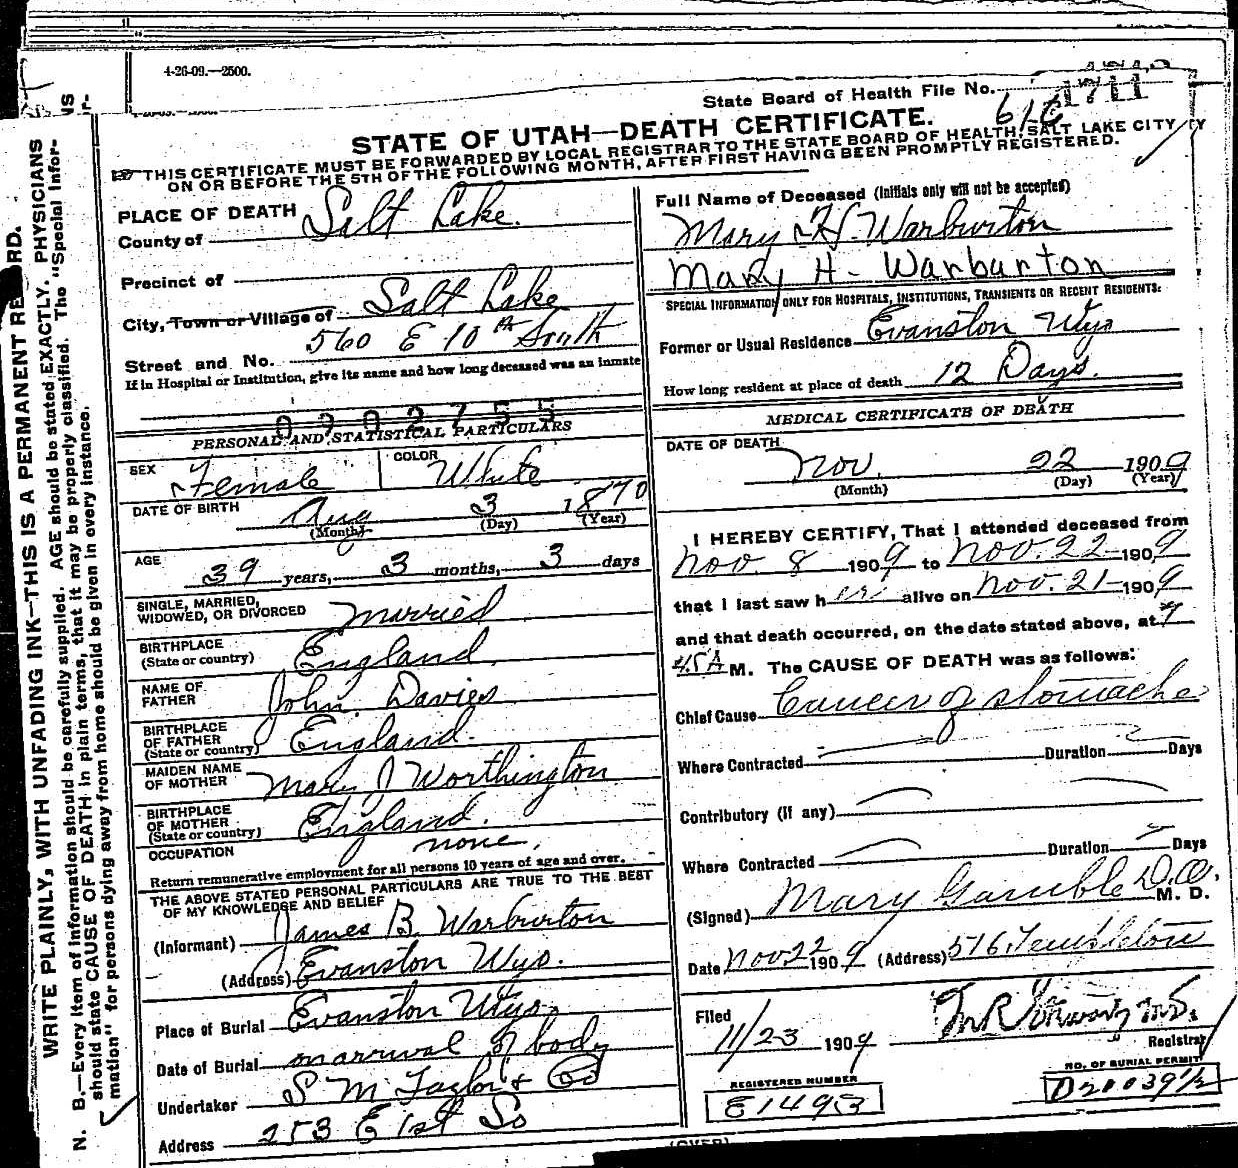 4-26-09.—2500.
State Board of Health File No.
1711
616
STATE OF UTAH—DEATH CERTIFICATE.
THIS CERTIFICATE MUST BE FORWARDED BY LOCAL REGISTRAR TO THE STATE BOARD OF HEALTH, SALT LAKE CITY
ON OR BEFORE THE 5TH OF THE FOLLOWING MONTH, AFTER FIRST HAVING BEEN PROMPTLY REGISTERED.
WRITE PLAINLY, WITH UNFADING INK—THIS IS A PERMANENT RE RD.
N. B.—Every item of information should be carefully supplied. AGE should be stated EXACTLY. PHYSICIANS
should state CAUSE OF DEATH in plain terms, that it may be properly classified. The "Special Infor-
mation" for persons dying away from home should be given in every instance.
PLACE OF DEATH
County of Salt Lake.
Precinct of
City, Town or Village of Salt Lake
Street and No. 560 E 10th South
If in Hospital or Institution, give its name and how long deceased was an inmate
0902755
PERSONAL AND STATISTICAL PARTICULARS
SEX Female COLOR White
DATE OF BIRTH Aug 3 1870
(Month) (Day) (Year)
AGE 39 years, 3 months, 3 days
SINGLE, MARRIED,
WIDOWED, OR DIVORCED married
BIRTHPLACE
(State or country) England
NAME OF
FATHER John Davies
BIRTHPLACE
OF FATHER
(State or country) England.
MAIDEN NAME
OF MOTHER Mary J Worthington
BIRTHPLACE
OF MOTHER
(State or country) England.
OCCUPATION none.
Return remunerative employment for all persons 10 years of age and over.
THE ABOVE STATED PERSONAL PARTICULARS ARE TRUE TO THE BEST
OF MY KNOWLEDGE AND BELIEF
(Informant) James B. Warburton
(Address) Evanston Wyo.
Place of Burial Evanston Wyo.
Date of Burial on arrival of body
Undertaker S M Taylor & Co
Address 253 E 1st So
Full Name of Deceased (Initials only will not be accepted)
Mary H. Warburton
Mary H- Warburton
SPECIAL INFORMATION ONLY FOR HOSPITALS, INSTITUTIONS, TRANSIENTS OR RECENT RESIDENTS:
Former or Usual Residence Evanston Wyo
How long resident at place of death 12 Days.
MEDICAL CERTIFICATE OF DEATH
DATE OF DEATH
Nov. 22 1909
(Month) (Day) (Year)
I HEREBY CERTIFY, That I attended deceased from
Nov. 8 1909 to Nov. 22 1909
that I last saw her alive on Nov. 21 1909
and that death occurred, on the date stated above, at 7
45 A M. The CAUSE OF DEATH was as follows:
Chief Cause Cancer of stomache
Where Contracted Duration Days
Contributory (if any)
Where Contracted Duration Days
(Signed) Mary Gamble D.O. M. D.
Date Nov 22 1909 (Address) 516 Templeton
Filed
11/23 1909
Registrar
REGISTERED NUMBER
E1493
NO. OF BURIAL PERMIT
D20039½
(OVER)